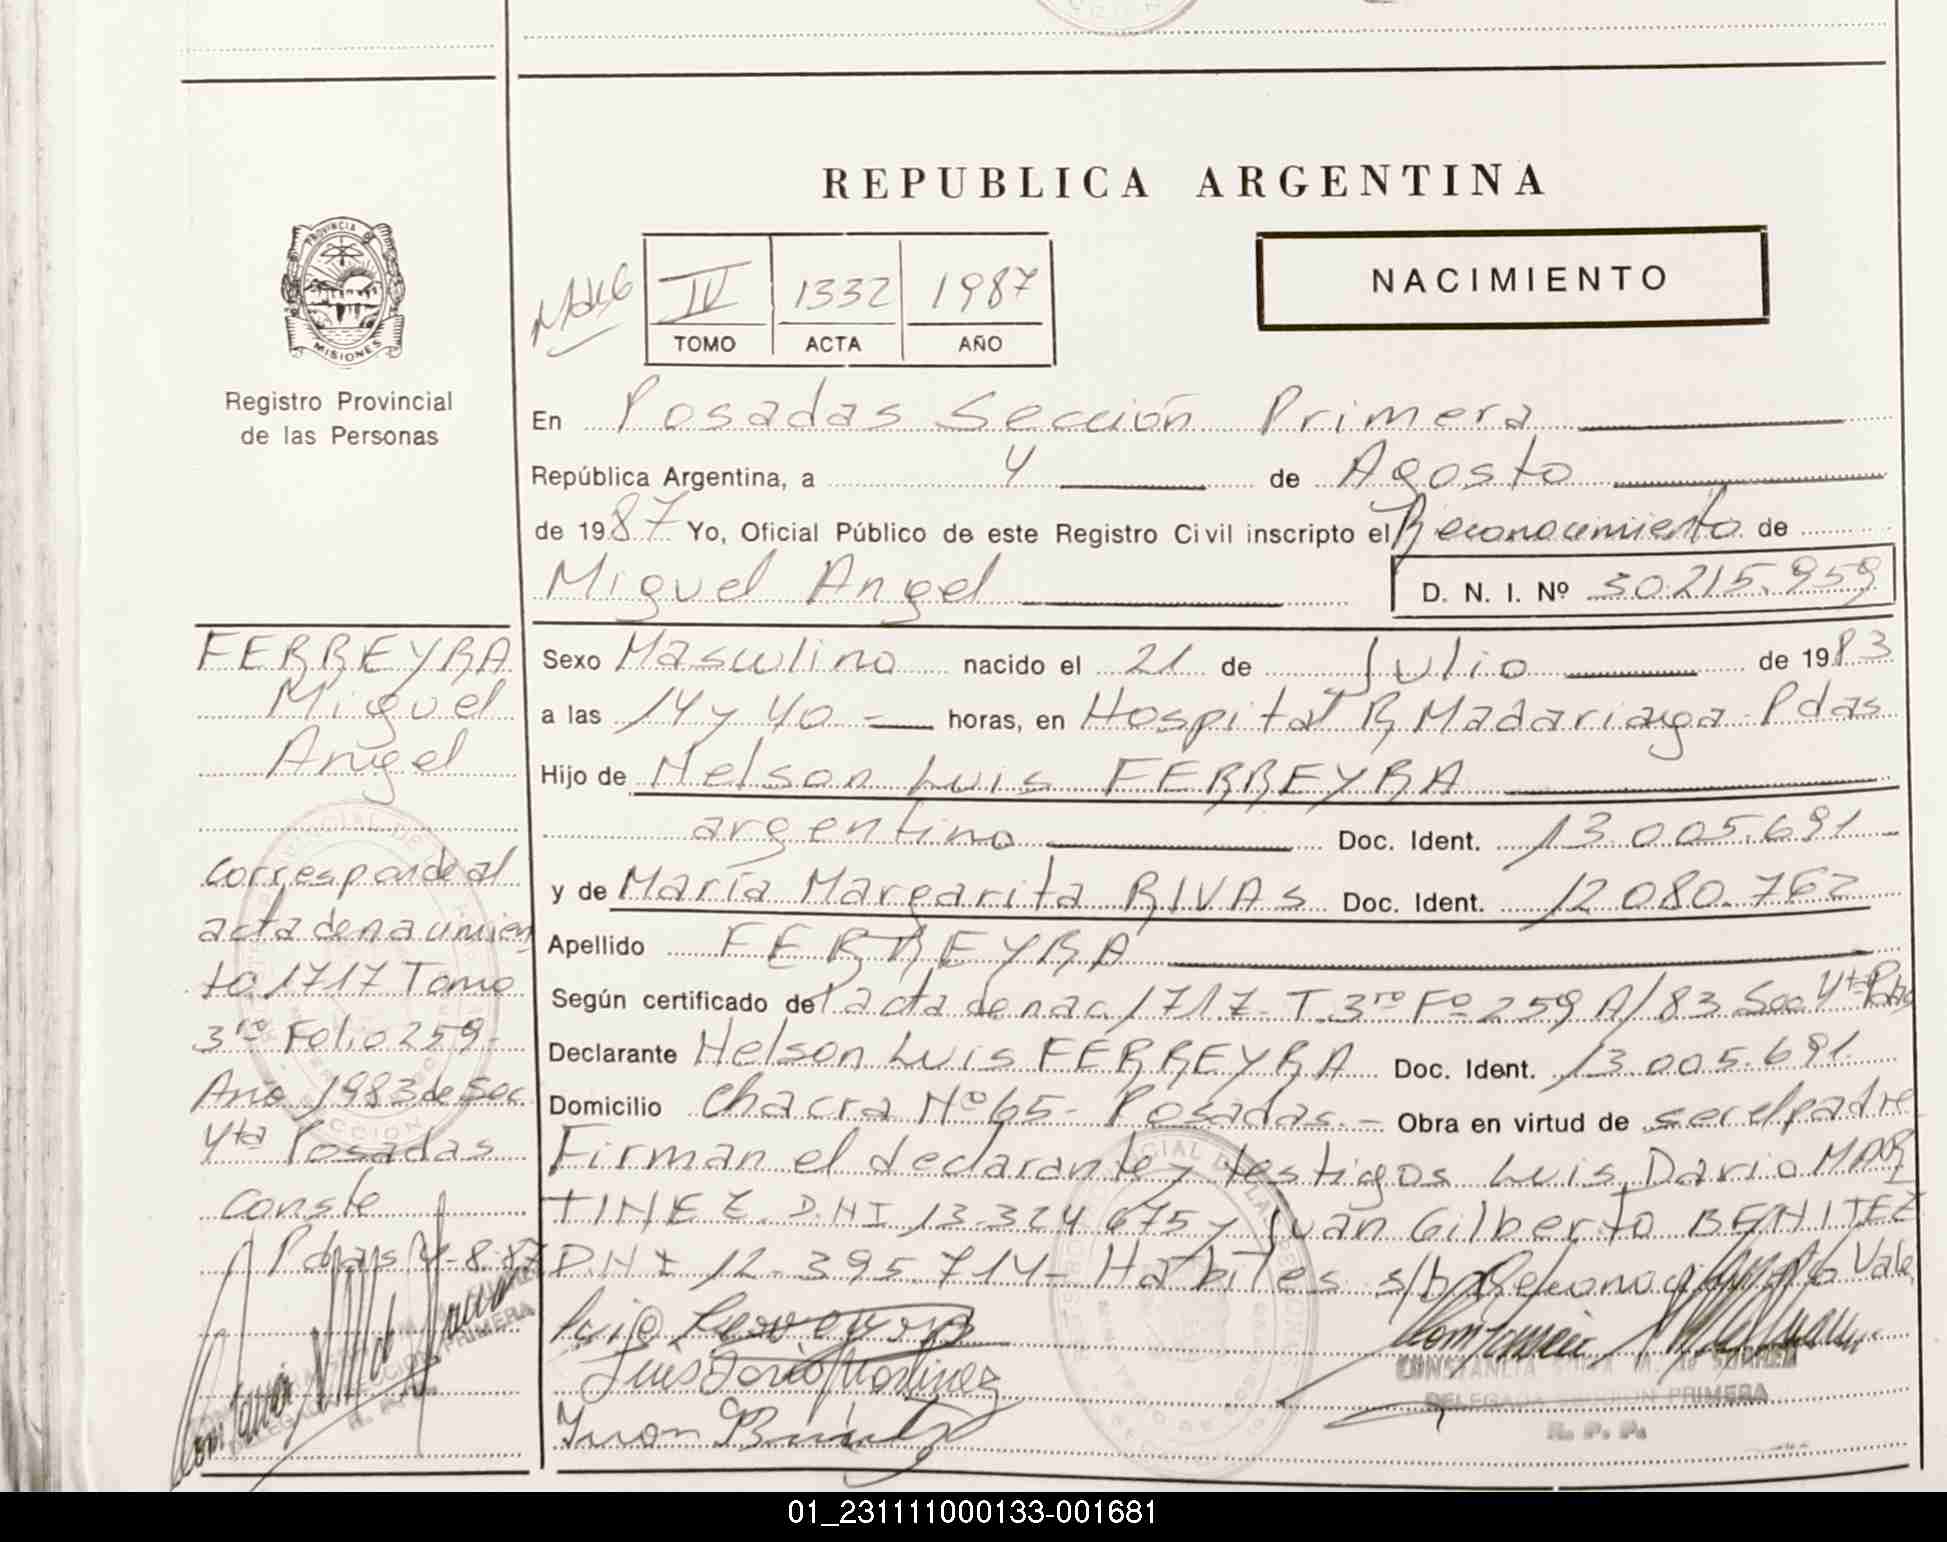 REPUBLICA ARGENTINA
PROVINCIA DE
MISIONES
Registro Provincial
de las Personas
IV 1332 1987
TOMO ACTA AÑO
NACIMIENTO
En Posadas Sección Primera
República Argentina, a 4 de Agosto
de 1987 Yo, Oficial Público de este Registro Civil inscripto el Reconocimiento de
Miguel Angel D. N. I. Nº 30.215.959
FERREYRA
Miguel
Angel
corresponde al
acta de nacimien
to 1717 Tomo
3ro Folio 259-
Año 1983 de Sec.
4ta Posadas
conste
Pdas 4-8-87
Sexo Masculino nacido el 21 de Julio de 1983
a las 14 y 40 horas, en Hospital R Madariaga - Pdas
Hijo de Nelson Luis FERREYRA
argentino Doc. Ident. 13.005.691
y de María Margarita RIVAS Doc. Ident. 12.080.762
Apellido FERREYRA
Según certificado de acta de nac. 1717- T. 3ro Fº 259 A/83 Sec 4ta Pdas
Declarante Nelson Luis FERREYRA Doc. Ident. 13.005.691
Domicilio Chacra Nº 65- Posadas.- Obra en virtud de ser el padre
Firman el declarante y testigos Luis Dario MAR
TINEZ D.N.I 13.324.675 y Juan Gilberto BENITEZ
D.N.I 12.395.714- Habiles s/b Vale
Luis Dario Martinez
Juan
DELEGADA SECCION PRIMERA
R. P. P.
01_231111000133-001681